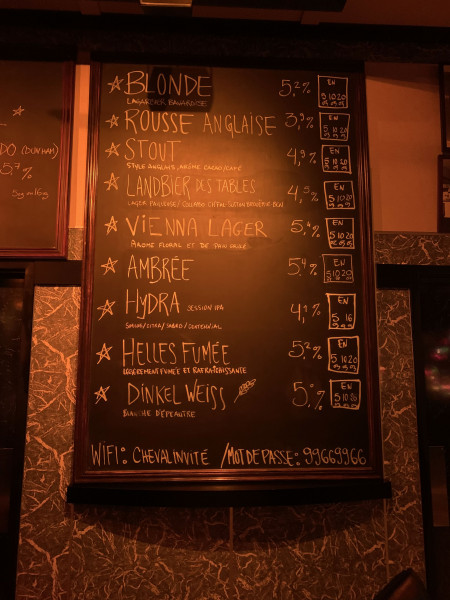 BLONDE 5,2%
EN
5 10 20
ROUSSE ANGLAISE 3,9%
EN
5 10 20
STOUT 4,9%
STYLE ANGLAIS, ARÔME CACAO/CAFÉ
EN
5 10 20
LANDBIER DES TABLES 4,5%
EN
5 10 20
VIENNA LAGER
AROME FLORAL ET DE PAIN
EN
5 10 20
AMBRÉE 5,4%
EN
5 10 20
HYDRA SESSION IPA
EN
5 16
HELLES FUMÉE 5,2%
LÉGÈREMENT FUMÉE ET RAFRAÎCHISSANTE
EN
5 10 20
DINKEL WEISS
BLANCHE D'ÉPEAUTRE
EN
5 10 20
WIFI: CHEVALINVITÉ /MOT DE PASSE: 99669966
DO (DUNHAM)
5,7%
5 16